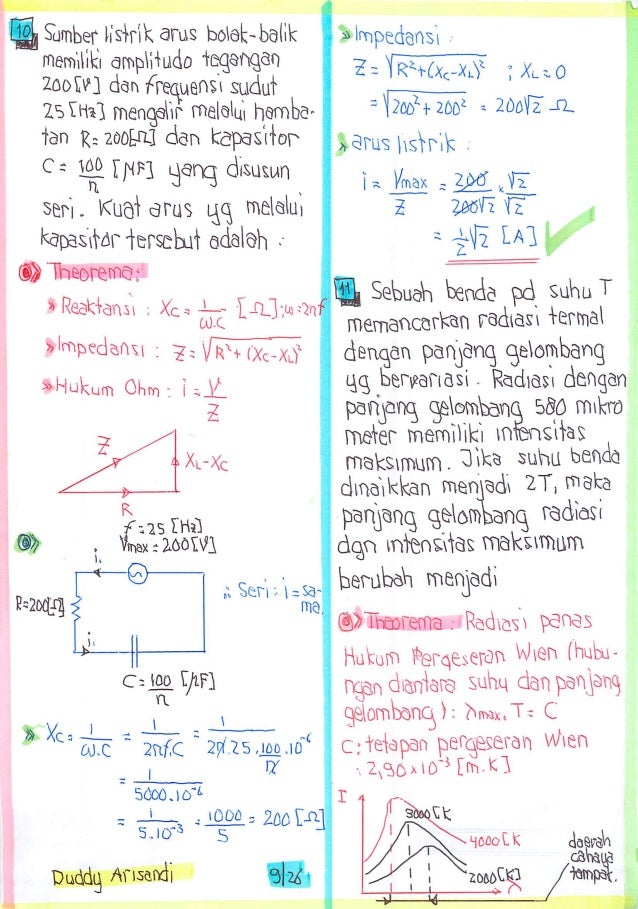 10 Sumber listrik arus bolak-balik
memiliki amplitudo tegangan
200 [V] dan frequensi sudut
25 [Hz] mengalir melalui hamba-
tan R = 200 [Ω] dan kapasitor
C = 100/π [μF] yang disusun
seri. Kuat arus yg melalui
kapasitor tersebut adalah :
Theorema:
Reaktansi : Xc = 1/ω.C [Ω] ; ω = 2πf
Impedansi : Z = √R²+(Xc-XL)²
Hukum Ohm : i = V/Z
Z
XL-XC
R
f = 25 [Hz]
Vmax = 200 [V]
i.
R=200[Ω]
∴ Seri : i = sa-
ma.
i.
C = 100/π [μF]
Xc = 1/ω.C = 1/2πf.C = 1/2π.25.100/π.10⁻⁶
= 1/5000.10⁻⁶
= 1/5.10⁻³ = 1000/5 = 200 [Ω]
Duddy Arisandi
9/26
Impedansi :
Z = √R²+(Xc-XL)² ; XL = 0
= √200²+200² = 200√2 Ω
arus listrik :
i = Vmax/Z = 200/200√2 × √2/√2
= 1/2√2 [A]
11 Sebuah benda pd suhu T
memancarkan radiasi termal
dengan panjang gelombang
yg bervariasi. Radiasi dengan
panjang gelombang 580 mikro
meter memiliki intensitas
maksimum. Jika suhu benda
dinaikkan menjadi 2T, maka
panjang gelombang radiasi
dgn intensitas maksimum
berubah menjadi
Theorema : Radiasi panas
Hukum Pergeseran Wien (hubu-
ngan diantara suhu dan panjang
gelombang) : λmax. T = C
C : tetapan pergeseran Wien
: 2,90 x 10⁻³ [m.K]
I
3000 [K
4000 [K
2000 [K]
λ
daerah
cahaya
tampak.